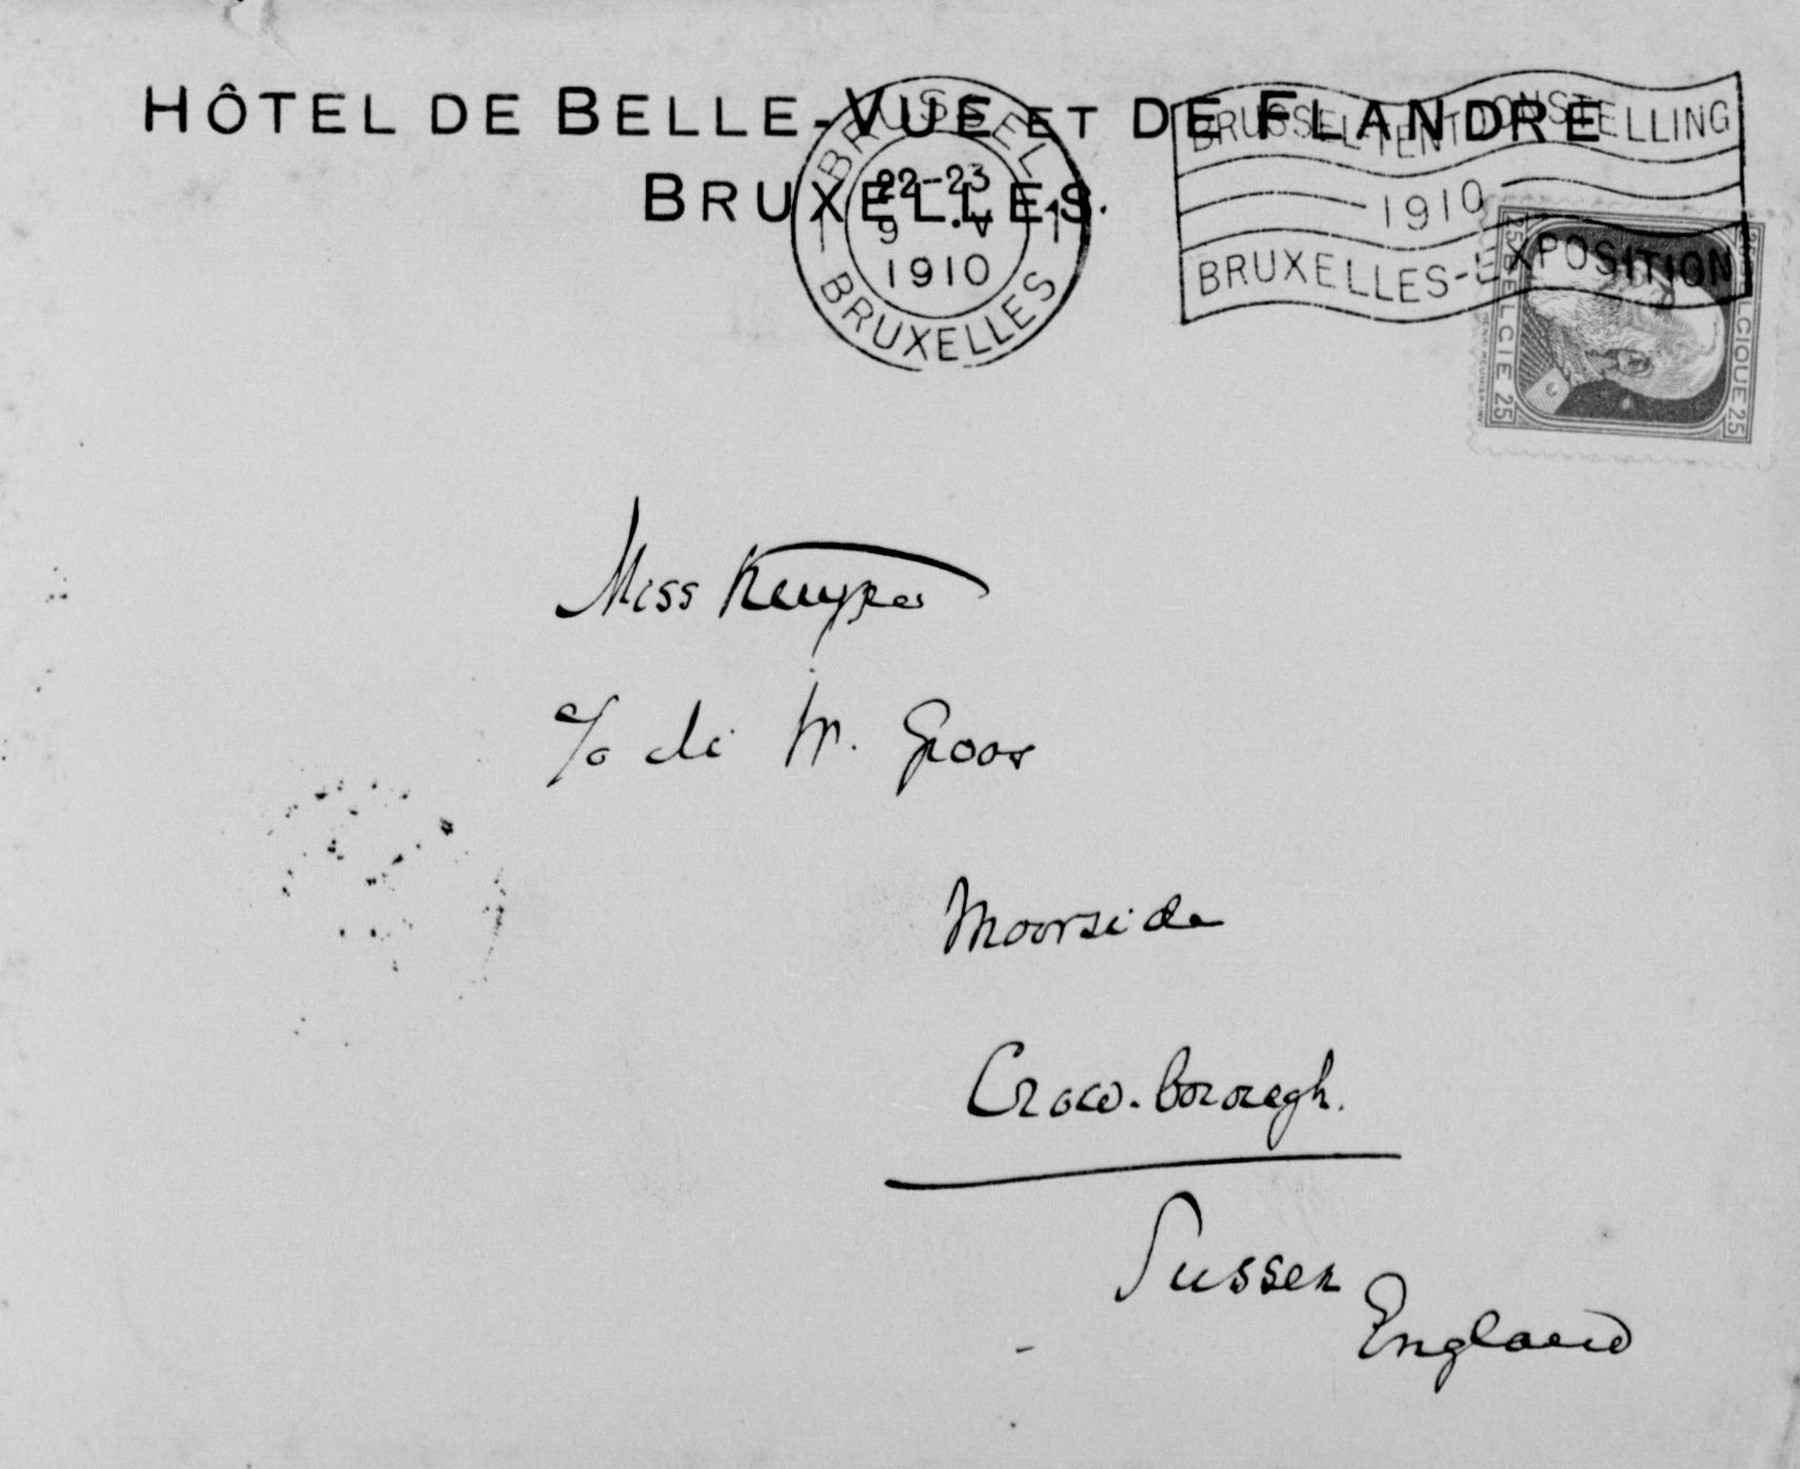 HÔTEL DE BELLE-VUE ET DE FLANDRE
BRUXELLES.
BRUSSEL
22-23
9 .V
1910
1 1
BRUXELLES
BRUSSEL-TENTOONSTELLING
1910
BRUXELLES-EXPOSITION
BELGIE 25
25 BELGIQUE 25
Miss Kuyper
c/o M. Groos
Moorside
Crow-borough.
Sussex
England